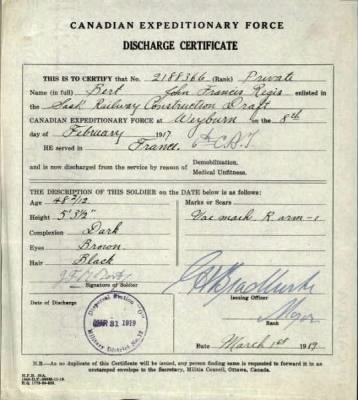 CANADIAN EXPEDITIONARY FORCE
DISCHARGE CERTIFICATE
THIS IS TO CERTIFY that No. 2188366 (Rank) Private
Name (in full) Bert John Francis Regis enlisted in
the Sask Railway Construction Draft
CANADIAN EXPEDITIONARY FORCE at Weyburn on the 8th
day of February 1917
HE served in France
and is now discharged from the service by reason of Demobilization.
Medical Unfitness.
THE DESCRIPTION OF THIS SOLDIER on the DATE below is as follows:
Age 48 2/12
Height 5' 3½"
Complexion Dark
Eyes Brown
Hair Black
Marks or Scars
Vac mark. R arm-1
Signature of Soldier
Date of Discharge
Dispersal Station
MAR 31 1919
Military District No. 12
Issuing Officer
Major
Rank
Date March 1st 1919
N.B.—As no duplicate of this Certificate will be issued, any person finding same is requested to forward it in an
unstamped envelope to the Secretary, Militia Council, Ottawa, Canada.